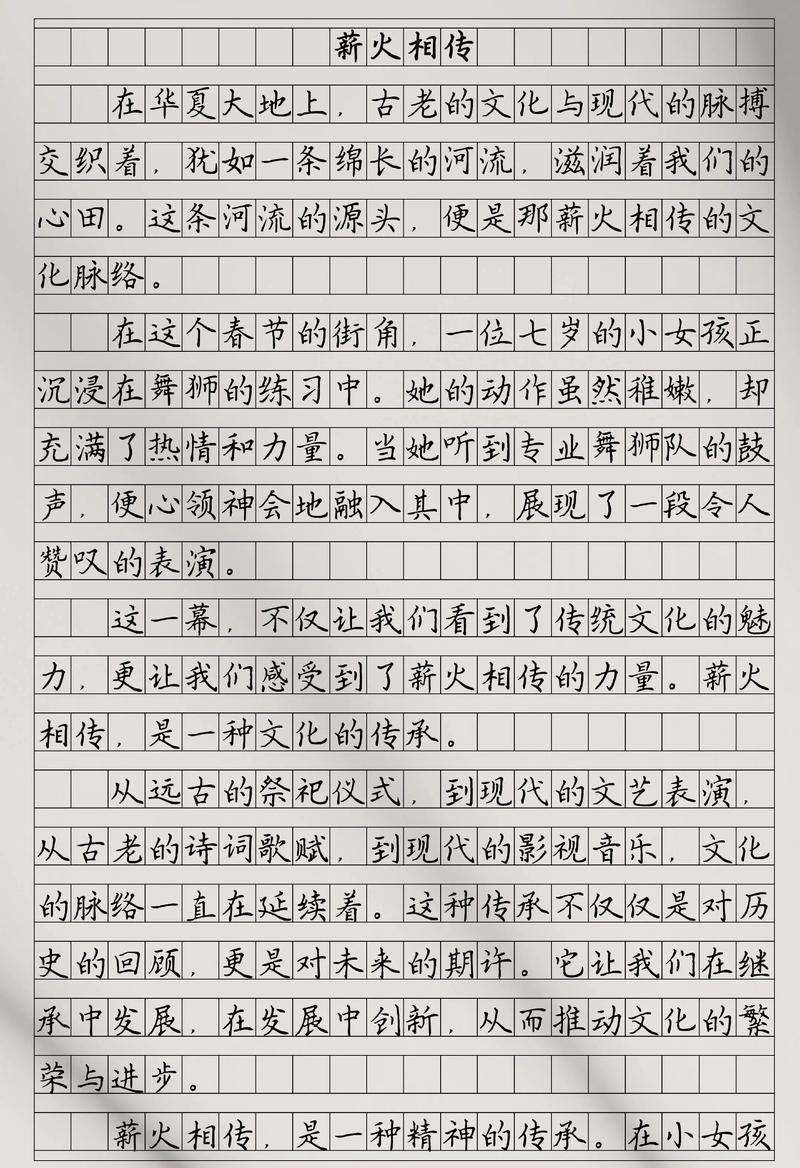 薪火相传
在华夏大地上，古老的文化与现代的脉搏
交织着，犹如一条绵长的河流，滋润着我们的
心田。这条河流的源头，便是那薪火相传的文
化脉络。
在这个春节的街角，一位七岁的小女孩正
沉浸在舞狮的练习中。她的动作虽然稚嫩，却
充满了热情和力量。当她听到专业舞狮队的鼓
声，便心领神会地融入其中，展现了一段令人
赞叹的表演。
这一幕，不仅让我们看到了传统文化的魅
力，更让我们感受到了薪火相传的力量。薪火
相传，是一种文化的传承。
从远古的祭祀仪式，到现代的文艺表演，
从古老的诗词歌赋，到现代的影视音乐，文化
的脉络一直在延续着。这种传承不仅仅是对历
史的回顾，更是对未来的期许。它让我们在继
承中发展，在发展中创新，从而推动文化的繁
荣与进步。
薪火相传，是一种精神的传承。在小女孩